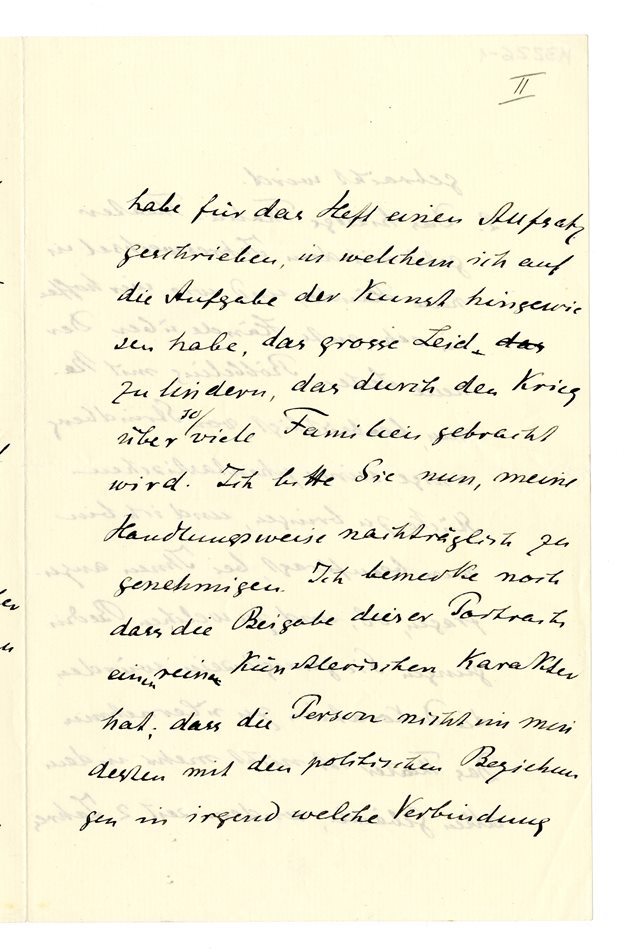 II
habe für das Heft einen Aufsatz
geschrieben, in welchem ich auf
die Aufgabe der Kunst hingewie
sen habe, das grosse Leid, das
zu lindern, das durch den Krieg
über so/ viele Familien gebracht
wird. Ich bitte Sie nun, meine
Handlungsweise nachträglich zu
genehmigen. Ich bemerke noch
dass die Beigabe dieses Portraits
einen reinen Künstlerischen Karakter
hat; dass die Person nicht im min
desten mit den politischen Beziehun
gen in irgend welche Verbindung